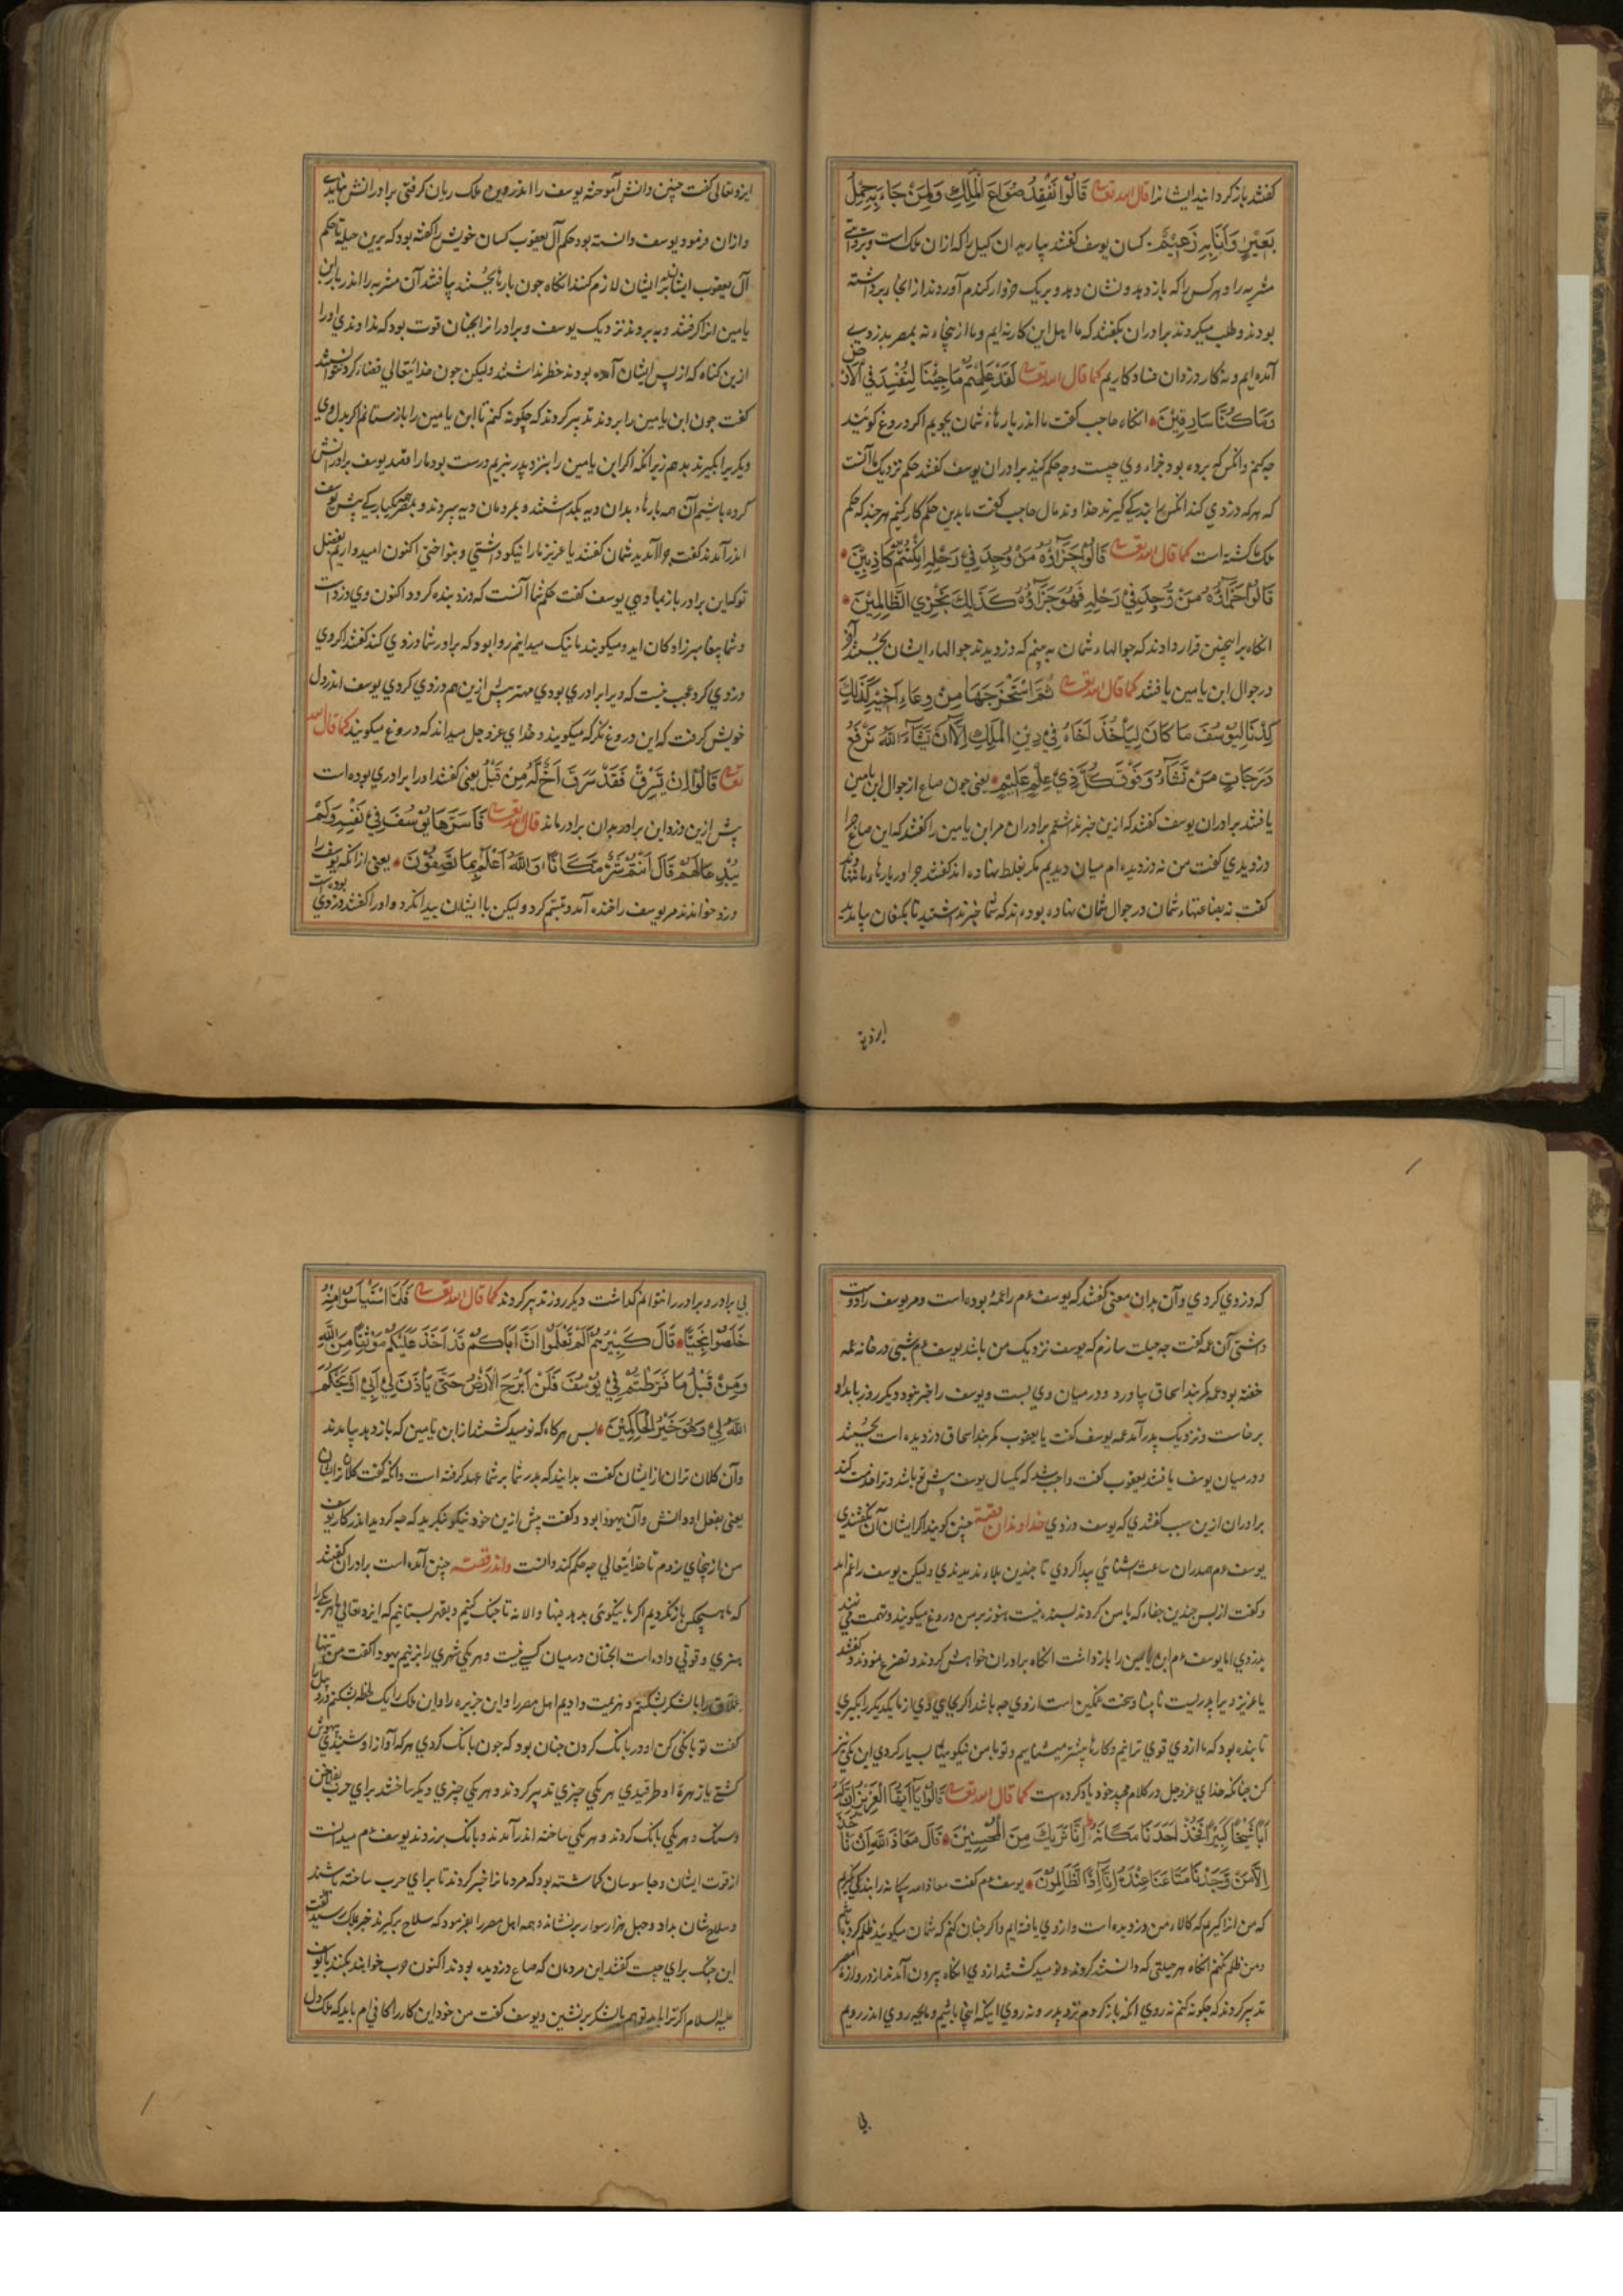 کفتند باز کردانید ایشانرا قال الله تعالی قَالُوا نَفْقِدُ صُوَاعَ الْمَلِكِ وَلِمَنْ جَاءَ بِهِ حِمْلُ
بَعِيْرٍ وَاَنَابِهِ زَعِيْمٌ کسان یوسف کفتند بیارید آن کیل را که ازان ملک است
مشربه را و هر کس را که باز دهد و نشان دهد ویر یک خروار کندم آوردند از انجا برداشته
بودند و طلب میکردند برادران بکفتند که ما اهل این کار نه ایم و ما از پنجاه نه بمصر بدزدیی
آمده ایم و نه کار دزدان فساد کاریم کما قال الله تعالی لَقَدْ عَلِمْتُمْ مَاجِئْنَا لِنُفْسِدَ فِي الْاَرْضِ
وَمَاكُنَّا سَارِقِيْنَ انکاه حاجب کفت ما اندر بارهاء شمان بجویم اکر دروغ کوئید
چه کنم وانکس که برده بود جزاء وي چیست و چه حکم کنید برادران یوسف کفتند حکم نزدیک ما آنست
که هر که دزدي کند انکس را بندکي کیرند خداوند مال حاجب کفت ما بدین حکم کار کنیم هرچند که حکم
ملک کشته است کما قال الله تعالی قَالُوا جَزَاؤُهُ مَنْ وُجِدَ فِيْ رَحْلِهِ اِنْ كُنْتُمْ كَاذِبِيْنَ
قَالُوا جَزَاؤُهُ مَنْ وُجِدَ فِيْ رَحْلِهِ فَهُوَ جَزَاؤُهُ كَذٰلِكَ نَجْزِي الظَّالِمِيْنَ
انکاه برا همچنین قرار دادند که جوالهاء شمان به بینم که دزدیدند جوالهاء ایشان بجستند آخر
در جوال ابن یامین یافتند کما قال الله تعالی ثُمَّ اسْتَخْرَجَهَا مِنْ وِعَاءِ اَخِيْهِ كَذٰلِكَ
كِدْنَا لِيُوْسُفَ مَا كَانَ لِيَأْخُذَ اَخَاهُ فِيْ دِيْنِ الْمَلِكِ اِلَّا اَنْ يَشَاءَ اللهُ نَرْفَعُ
دَرَجَاتٍ مَنْ نَشَاءُ وَفَوْقَ كُلِّ ذِيْ عِلْمٍ عَلِيْمٌ یعنی جون صاع از جوال ابن یامین
یافتند برادران یوسف کفتند که ازین خبر نداشتم برادران مر ابن یامین را کفتند که این صاع چرا
دزدیدي کفت من نه دزدیده ام میان دیدیم مکر بغلط نهاده اند کفتند چرا در بارهاء ما
کفت نه بضاعتهاء شمان در جوال شمان نهاده بودند که شما خبر نداشتید تا بکنعان بیامدید
ایزد تعالی کفت چنین دانش آموخته یوسف را اندر وین ملک ریان کرفتی برادرانش
وازان فرمود یوسف دانسته بود حکم آل یعقوب کسان خویش را کفته بود که برین حیله تا حکم
آل یعقوب ایشانرا بر ایشان لازم کنند انکاه جون بارها بجستند بیافتند آن مشربه را اندر بار ابن
یامین او را کرفتند و به بردند نزدیک یوسف و برادرانرا آنچنان قوت بود که
ازین کناه که از پس ایشان آمده بودند خطر نداشتند ولیکن جون خدا یتعالي قضاء کرد نتوانستند
کفت جون ابن یامین را بردند تدبیر کردند که چکونه کنم تا ابن یامین را باز ستانم اکر بدل وي
دیکر یرا بکیرند بدهم زیرا نکه اکر ابن یامین را بنزد پدر نبریم درست بود ما را قصد یوسف برادرانش
کرده باشیم آن همه بارهاء بدان دیه بکذاشتند و بمردمان دیه سپردند و بمصر یکبارکي پیش یوسف
اندر آمدند کفت چرا آمدید شمان کفتند یا عزیز ما را نیکو داشتي و بنواختي اکنون امیدواریم بفضل
تو که این برادر باز بما دهي یوسف کفت حکم شما آنست که دزد بنده کردد اکنون وي دزد است
و شما پیغامبر زادکان اید و میکویند ما نیک میدانیم روا بود که برادر شما دزدي کند کفتند اکر وي
دزدي کرد عجب نیست که ویرا برادري بودي مهتر پیش ازین هم دزدي کردي یوسف اندر دل
خویش کرفت که این دروغ نکر که میکویند و خداي عز و جل میداند که دروغ میکویند کما قال الله
تعالی قَالُوا اِنْ يَسْرِقْ فَقَدْ سَرَقَ اَخٌ لَهُ مِنْ قَبْلُ یعنی کفتند او را برادري بوده است
پیش ازین دزد این برادر بدان برادر ماند قال الله تعالی فَاَسَرَّهَا يُوْسُفُ فِيْ نَفْسِهِ وَلَمْ
يُبْدِهَا لَهُمْ قَالَ اَنْتُمْ شَرٌّ مَكَانًا وَاللهُ اَعْلَمُ بِمَا تَصِفُوْنَ یعنی ازانکه یوسف را
دزد خواندند مر یوسف را خنده آمد و تبسم کرد ولیکن با ایشان پیدا نکرد و او را کفتند دزدي بوده است
ایزد
که دزدي کردي و آن بدان معنی کفتند که یوسف ع م را عمهٔ بوده است و مر یوسف را دوست
داشتی آن عمه کفت چه حیلت سازم که یوسف نزدیک من باشد یوسف ع م شبی در خانه عمه
خفته بود عمه کمربند اسحاق بیاورد و در میان وي بست و یوسف را خبر نبود دیکر روز بامداد
برخاست و نزدیک پدر آمد عمه یوسف کفت یا یعقوب کمربند اسحاق دزدیده است بجستند
و در میان یوسف یافتند یعقوب کفت واجب شد که یکسال یوسف پیش تو باشد و ترا خدمت کند
برادران ازین سبب کفتندي که یوسف دزدي خداوندان قصه چنین کویند اکر ایشان آن نکفتندي
یوسف ع م همدران ساعت آشنائي پیدا کردي تا چندین بلاء ندیدندي ولیکن یوسف را غم آمد
و کفت از پس چندین جفاء که با من کردند بسنده نیست هنوز بر من دروغ میکویند و تهمت می نهند
بدزدي اما یوسف ع م ابن یامین را باز داشت انکاه برادران خواهش کردند و تضرع نمودند کفتند
یا عزیز ویرا پدریست نا بینا و سخت غمکین است ازوي چه باشد اکر بجاي وي از ما یکدیکر را بکیري
تا بنده بود که ما از وي قوي ترانیم و کارها بیشتر میشاییم و تو با من نیکوئیها بسیار کردي این یکي نیز
کن چنانکه خداي عز و جل در کلام مجید خود یاد کرده است کما قال الله تعالی قَالُوا يَا اَيُّهَا الْعَزِيْزُ اِنَّ لَهُ
اَبًا شَيْخًا كَبِيْرًا فَخُذْ اَحَدَنَا مَكَانَهُ اِنَّا نَرٰيكَ مِنَ الْمُحْسِنِيْنَ قَالَ مَعَاذَ اللهِ اَنْ نَأْخُذَ
اِلَّا مَنْ وَجَدْنَا مَتَاعَنَا عِنْدَهُ اِنَّا اِذًا لَظَالِمُوْنَ یوسف ع م کفت معاذ الله بیکانه را بندکي کیرم
که من انرا کیرم که کالاء من دزدیده است و از وي یافته ایم و اکر چنان کنم که شمان میکوئید ظلم کرده باشم
و من ظلم نکنم انکاه هر حیلتی که دانستند کردند و نومید کشتند از وي انکاه بیرون آمدند از دروازهٔ مصر
تدبیر کردند که چکونه کنم نه روي آنکه باز کردم نزد پدر و نه روي اینکه اینجا باشیم و بچه روي اندر رویم
بي
بي برادر و برادر را نتوانم کذاشت دیکر روز تدبیر کردند کما قال الله تعالی فَلَمَّا اسْتَيْأَسُوْا مِنْهُ
خَلَصُوْا نَجِيًّا قَالَ كَبِيْرُهُمْ اَلَمْ تَعْلَمُوا اَنَّ اَبَاكُمْ قَدْ اَخَذَ عَلَيْكُمْ مَوْثِقًا مِنَ اللهِ
وَمِنْ قَبْلُ مَا فَرَّطْتُمْ فِيْ يُوْسُفَ فَلَنْ اَبْرَحَ الْاَرْضَ حَتّٰى يَأْذَنَ لِيْ اَبِيْ اَوْ يَحْكُمَ
اللهُ لِيْ وَهُوَ خَيْرُ الْحَاكِمِيْنَ پس هرکاه که نومید کشتند از ابن یامین که باز دهد بیامدند
و آن کلان تران از ایشان کفت بدانید که پدر شما بر شما عهد کرفته است و آنکه کفت کلان تر ایشان
یعنی بفعل او و دانش و آن یهودا بود و کفت پیش ازین خود نیکو نکرید که چه کردید اندر کار یوسف
من از پنجاي نروم تا خدا یتعالي چه حکم کند دانست واندر قصه چنین آمده است برادران کفتند
که ما هیچکس باز نکردیم اکر با نیکوئی بدهد فبها والا نه تا جنک کنیم و بقهر بستانیم که ایزد تعالي هر یکي را
هنري و قوتي داده است آنچنان در میان کسي نیست و هر یکي شهري را بزنیم یهودا کفت من تنها
را با لشکر بشکنم و هزیمت دادیم اهل مصر را و این جزیره را و این ملک را یک لحظه بشکنم
کفت تو بانکي کن او در بانک کردن چنان بود که چون بانک کردي هر که آواز او شنیدي بیهوش
کشتي یا زهرهٔ او طرقیدي هر یکي چیزي تدبیر کردند و هر یکي چیزي دیکر ساختند براي حرب
و سنک و هر یکي بانک کردند و هر یکي ساخته اندر آمدند و بانک برزدند یوسف ع م میدانست
از قوت ایشان و جاسوسان کماشته بود که مردمانرا خبر کردند تا براي حرب ساخته باشند
و سلاح شان بداد و چهل هزار سوار بر نشاند و همه اهل مصر را بفرمود که سلاح برکیرند خبر بملک رسید کفت
این جنک براي چیست کفتند این مردمان که صاع دزدیده بودند اکنون حرب خواهند بکنند با یوسف
علیه السلام اکر ترا باید تو هم با لشکر بر نشین و یوسف کفت من خود این کار را کافي ام باید که ملک دل